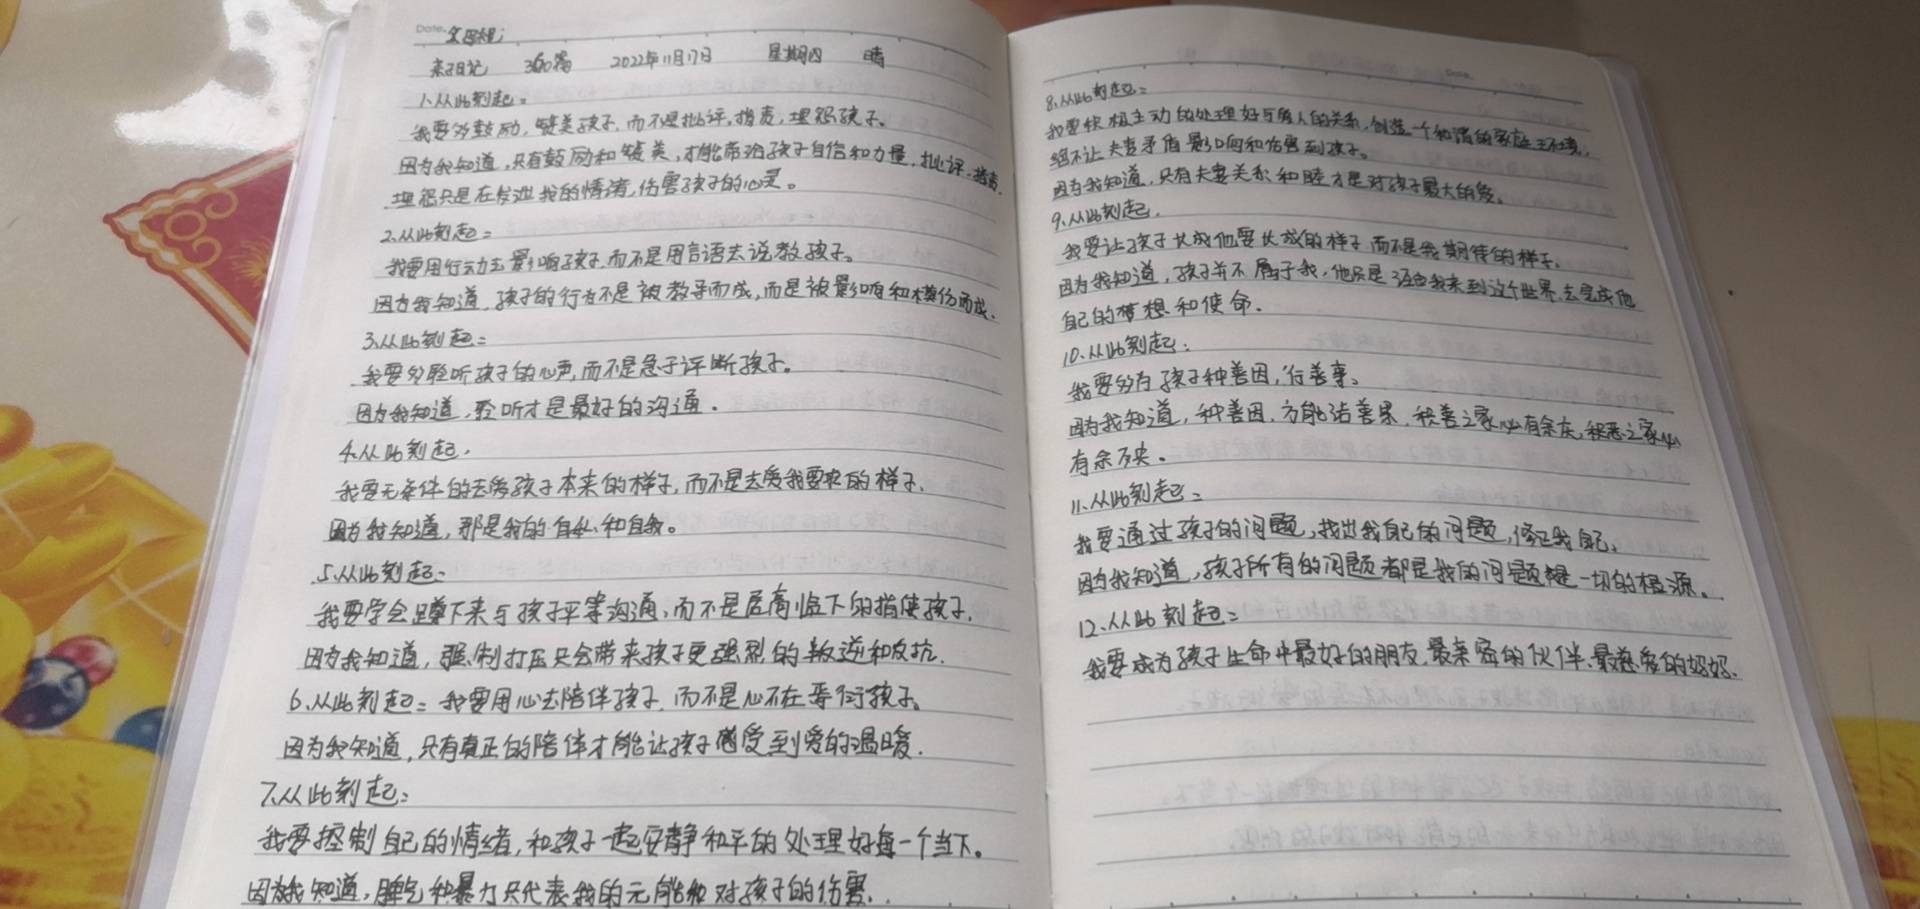 Date. 父母规:
亲子日记 360篇 2022年11月17日 星期四 晴
1、从此刻起:
我要多鼓励,赞美孩子,而不是批评,指责,埋怨孩子。
因为我知道,只有鼓励和赞美,才能带给孩子自信和力量,批评、指责,
埋怨只是在发泄我的情绪,伤害孩子的心灵。
2、从此刻起:
我要用行动去影响孩子,而不是用言语去说教孩子。
因为我知道,孩子的行为不是被教导而成,而是被影响和模仿而成、
3、从此刻起:
我要多聆听孩子的心声,而不是急于评断孩子。
因为我知道,聆听才是最好的沟通.
4、从此刻起,
我要无条件的去爱孩子本来的样子,而不是去爱我要求的样子、
因为我知道,那是我的自私和自我。
5、从此刻起:
我要学会蹲下来与孩子平等沟通,而不是居高临下的指使孩子,
因为我知道,强制打压只会带来孩子更强烈的叛逆和反抗.
6、从此刻起:我要用心去陪伴孩子,而不是心不在焉衍孩子。
因为我知道,只有真正的陪伴才能让孩子感受到爱的温暖.
7、从此刻起:
我要控制自己的情绪,和孩子一起安静和平的处理好每一个当下。
因为我知道,脾气和暴力只代表我的无能和对孩子的伤害、
Date.
8、从此刻起:
我要积极主动的处理好与家人的关系,创造一个和谐的家庭环境,
绝不让夫妻矛盾影响和伤害到孩子。
因为我知道,只有夫妻关系和睦才是对孩子最大的爱。
9、从此刻起,
我要让孩子长成他要长成的样子,而不是我期待的样子.
因为我知道,孩子并不属于我,他只是经由我来到这个世界,去完成他
自己的梦想和使命.
10、从此刻起:
我要多为孩子种善因,行善事、
因为我知道,种善因,方能结善果,积善之家必有余庆,积恶之家必
有余殃。
11、从此刻起:
我要通过孩子的问题,找出我自己的问题,修正我自己、
因为我知道,孩子所有的问题都是我的问题,我是一切的根源。
12、从此刻起:
我要成为孩子生命中最好的朋友,最亲密的伙伴、最慈爱的妈妈、